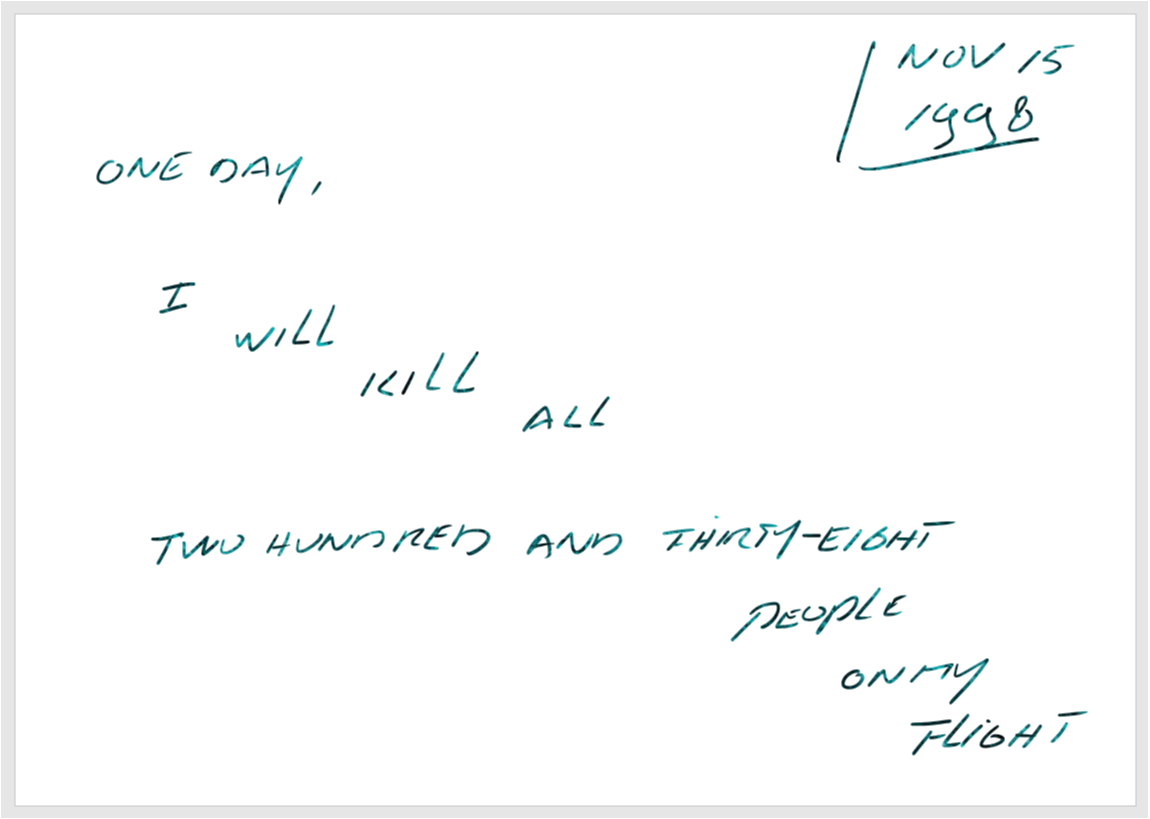 NOV 15
1998
ONE DAY,
I
WILL
KILL
ALL
TWO HUNDRED AND THIRTY-EIGHT
PEOPLE
ON MY
FLIGHT